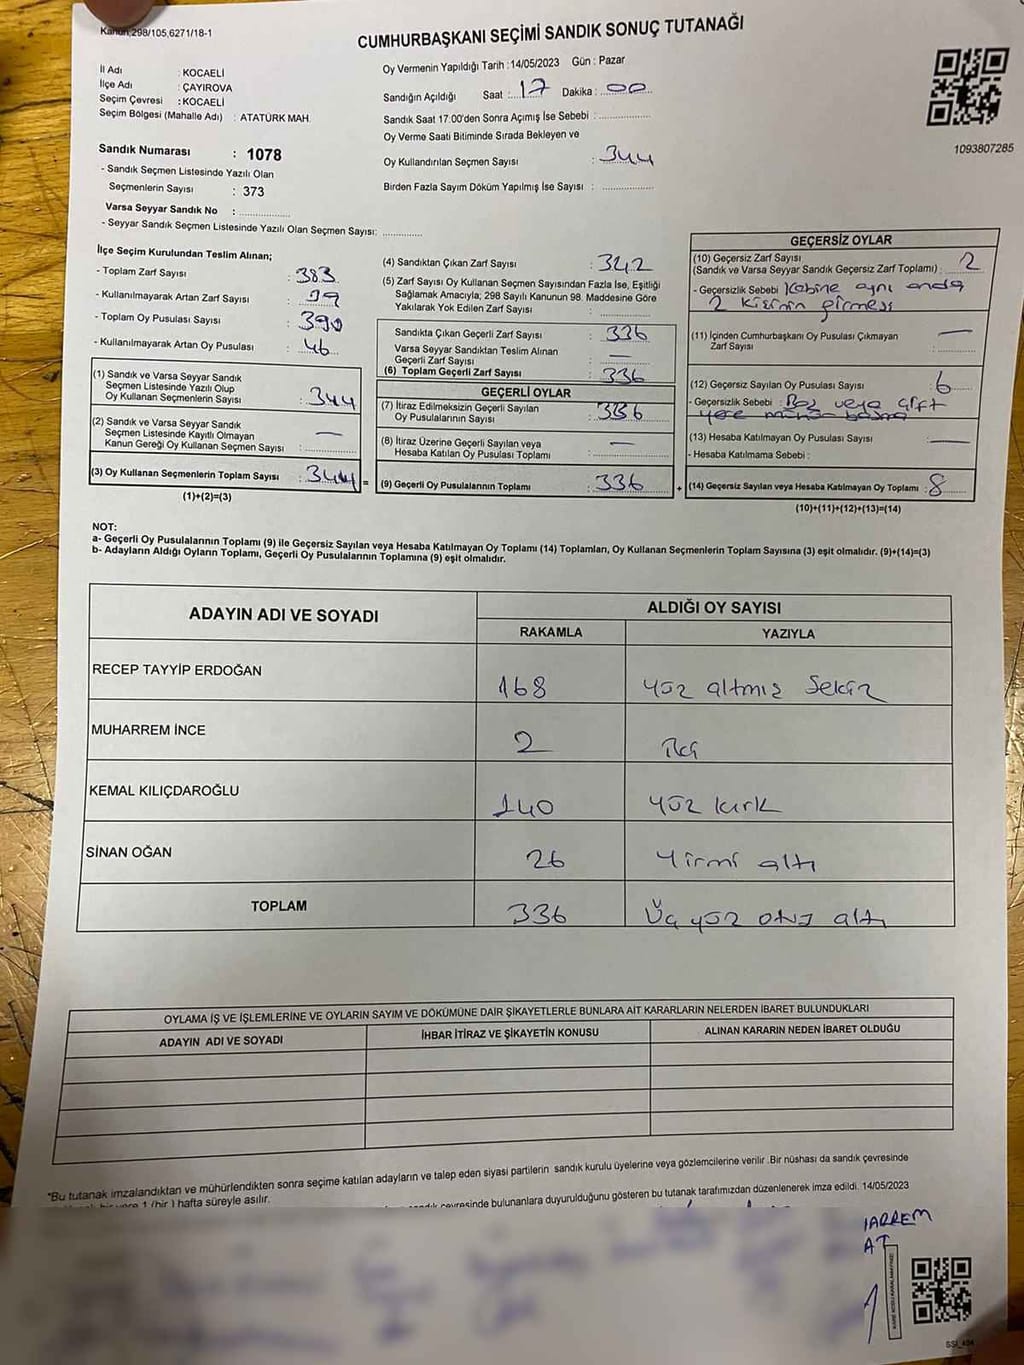 Kanun,298/105,6271/18-1
CUMHURBAŞKANI SEÇİMİ SANDIK SONUÇ TUTANAĞI
İl Adı : KOCAELİ
İlçe Adı : ÇAYIROVA
Seçim Çevresi : KOCAELİ
Seçim Bölgesi (Mahalle Adı) : ATATÜRK MAH.
Sandık Numarası : 1078
- Sandık Seçmen Listesinde Yazılı Olan
Seçmenlerin Sayısı : 373
Varsa Seyyar Sandık No :
- Seyyar Sandık Seçmen Listesinde Yazılı Olan Seçmen Sayısı:
Oy Vermenin Yapıldığı Tarih :14/05/2023 Gün : Pazar
Sandığın Açıldığı Saat : 17 Dakika : 00
Sandık Saat 17:00'den Sonra Açımış İse Sebebi :
Oy Verme Saati Bitiminde Sırada Bekleyen ve
Oy Kullandırılan Seçmen Sayısı : 344
Birden Fazla Sayım Döküm Yapılmış İse Sayısı :
1093807285
İlçe Seçim Kurulundan Teslim Alınan;
- Toplam Zarf Sayısı : 383
- Kullanılmayarak Artan Zarf Sayısı : 39
- Toplam Oy Pusulası Sayısı : 390
- Kullanılmayarak Artan Oy Pusulası : 46
(1) Sandık ve Varsa Seyyar Sandık
Seçmen Listesinde Yazılı Olup
Oy Kullanan Seçmenlerin Sayısı : 344
(2) Sandık ve Varsa Seyyar Sandık
Seçmen Listesinde Kayıtlı Olmayan
Kanun Gereği Oy Kullanan Seçmen Sayısı : —
(3) Oy Kullanan Seçmenlerin Toplam Sayısı : 344 =
(1)+(2)=(3)
(4) Sandıktan Çıkan Zarf Sayısı : 342
(5) Zarf Sayısı Oy Kullanan Seçmen Sayısından Fazla İse, Eşitliği
Sağlamak Amacıyla; 298 Sayılı Kanunun 98. Maddesine Göre
Yakılarak Yok Edilen Zarf Sayısı :
Sandıkta Çıkan Geçerli Zarf Sayısı : 336
Varsa Seyyar Sandıktan Teslim Alınan
Geçerli Zarf Sayısı : —
(6) Toplam Geçerli Zarf Sayısı : 336
GEÇERLİ OYLAR
(7) İtiraz Edilmeksizin Geçerli Sayılan
Oy Pusulalarının Sayısı : 336
(8) İtiraz Üzerine Geçerli Sayılan veya
Hesaba Katılan Oy Pusulası Toplamı : —
(9) Geçerli Oy Pusulalarının Toplamı : 336 +
GEÇERSİZ OYLAR
(10) Geçersiz Zarf Sayısı
(Sandık ve Varsa Seyyar Sandık Geçersiz Zarf Toplamı) : 2
- Geçersizlik Sebebi : Kabine aynı anda
2 kişinin girmesi
(11) İçinden Cumhurbaşkanı Oy Pusulası Çıkmayan
Zarf Sayısı : —
(12) Geçersiz Sayılan Oy Pusulası Sayısı : 6
- Geçersizlik Sebebi : Boş veya çift
yere mühür basma
(13) Hesaba Katılmayan Oy Pusulası Sayısı : —
- Hesaba Katılmama Sebebi :
(14) Geçersiz Sayılan veya Hesaba Katılmayan Oy Toplamı : 8
(10)+(11)+(12)+(13)=(14)
NOT:
a- Geçerli Oy Pusulalarının Toplamı (9) ile Geçersiz Sayılan veya Hesaba Katılmayan Oy Toplamı (14) Toplamları, Oy Kullanan Seçmenlerin Toplam Sayısına (3) eşit olmalıdır. (9)+(14)=(3)
b- Adayların Aldığı Oyların Toplamı, Geçerli Oy Pusulalarının Toplamına (9) eşit olmalıdır.
ADAYIN ADI VE SOYADI ALDIĞI OY SAYISI
RAKAMLA YAZIYLA
RECEP TAYYİP ERDOĞAN 168 yüz altmış sekiz
MUHARREM İNCE 2 iki
KEMAL KILIÇDAROĞLU 140 yüz kırk
SİNAN OĞAN 26 yirmi altı
TOPLAM 336 Üç yüz otuz altı
OYLAMA İŞ VE İŞLEMLERİNE VE OYLARIN SAYIM VE DÖKÜMÜNE DAİR ŞİKAYETLERLE BUNLARA AİT KARARLARIN NELERDEN İBARET BULUNDUKLARI
ADAYIN ADI VE SOYADI İHBAR İTİRAZ VE ŞİKAYETİN KONUSU ALINAN KARARIN NEDEN İBARET OLDUĞU
*Bu tutanak imzalandıktan ve mühürlendikten sonra seçime katılan adayların ve talep eden siyasi partilerin sandık kurulu üyelerine veya gözlemcilerine verilir .Bir nüshası da sandık çevresinde
1 (bir ) hafta süreyle asılır.
çevresinde bulunanlara duyurulduğunu gösteren bu tutanak tarafımızdan düzenlenerek imza edildi. 14/05/2023